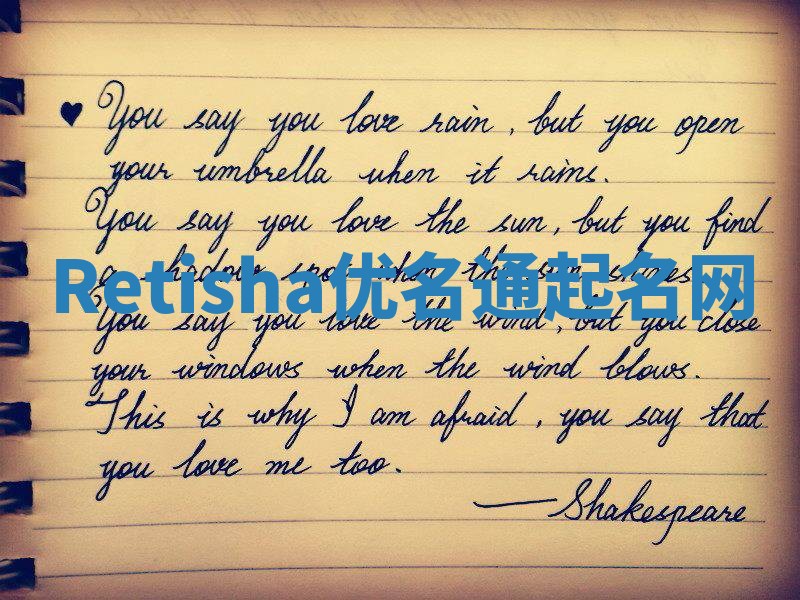 ♥ You say you love rain, but you open
your umbrella when it rains.
You say you love the sun, but you find
a shadow spot when the sun shines.
Retisha优名通起名网
You say you love the wind, but you close
your windows when the wind blows.
This is why I am afraid, you say that
you love me too.
—Shakespeare